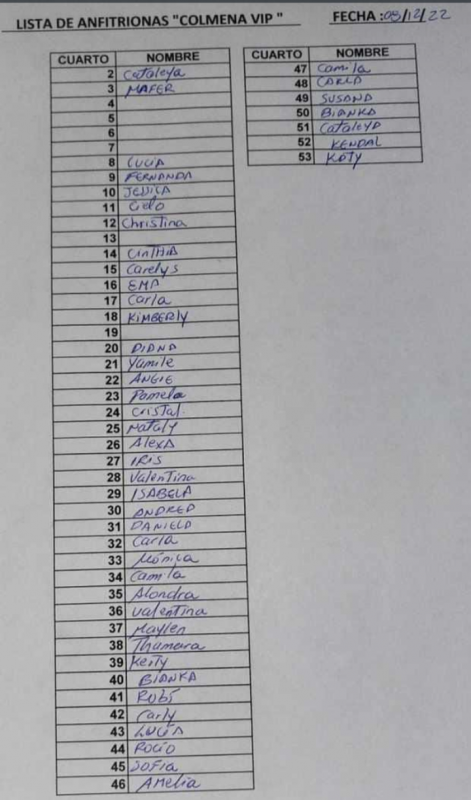 LISTA DE ANFITRIONAS "COLMENA VIP" FECHA :08/12/22
CUARTO NOMBRE
2 Cataleya
3 MAFER
4
5
6
7
8 LUCIA
9 FERNANDA
10 JESSICA
11 Cielo
12 Christina
13
14 CINTHIA
15 Carelys
16 EMA
17 Carla
18 KIMBERLY
19
20 DIANA
21 Yamile
22 ANGIE
23 Pamela
24 Cristal
25 Nataly
26 AlexA
27 IRIS
28 Valentina
29 ISABELA
30 ANDREA
31 DANIELA
32 Carla
33 Mónica
34 Camila
35 Alondra
36 Valentina
37 Maylen
38 Thamara
39 Keity
40 BIANKA
41 RUBÍ
42 Carly
43 LUCÍA
44 ROCÍO
45 SOFIA
46 Amelia
CUARTO NOMBRE
47 Camila
48 CARLA
49 SUSANA
50 BIANKA
51 CataleyA
52 KENDAL
53 KATY